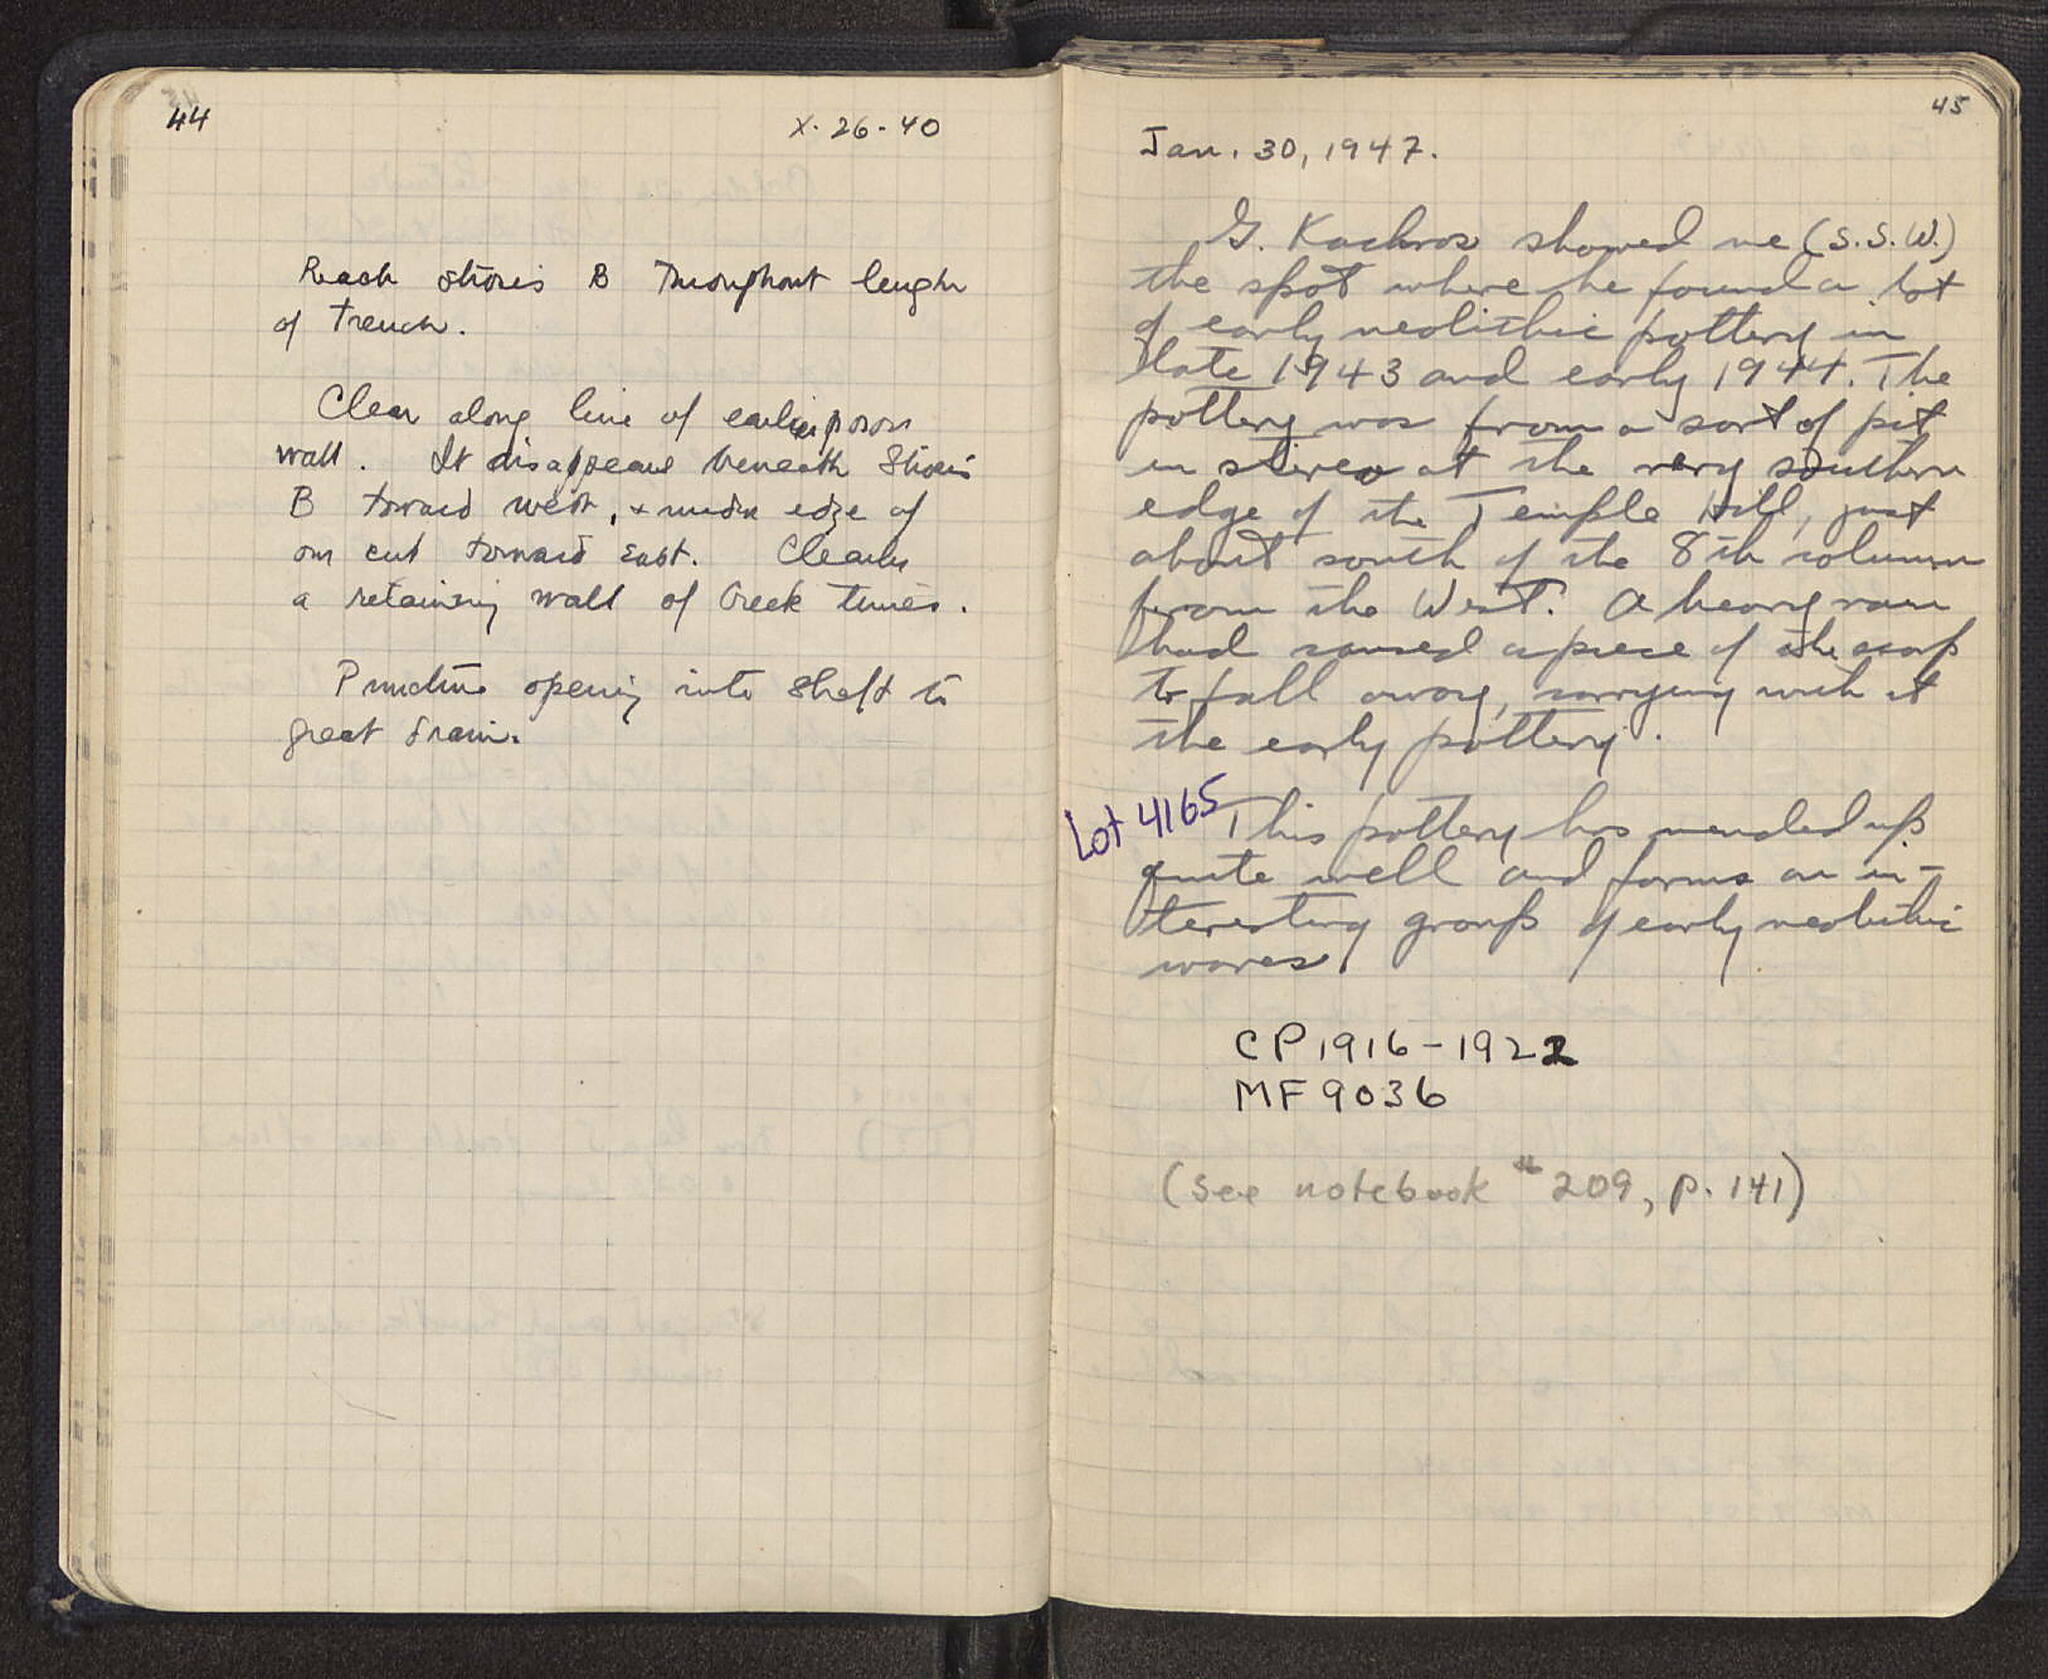 44
X. 26 - 40
Reach stosis B Throughout length
of trench.
Clear along line of earlier poros
wall. It disappears beneath Stosis
B toward west, + under edge of
our cut toward East. Clearly
a retaining wall of Greek times.
opening into shaft to
great drain.
45
Jan. 30, 1947.
G. Kachros showed me (S.S.W.)
the spot where he found a lot
of early neolithic pottery in
late 1943 and early 1944. The
pottery was from a sort of pit
in stereo at the very southern
edge of the Temple Hill, just
about south of the 8th column
from the West. A heavy rain
had caused a piece of the scarp
to fall away, carrying with it
the early pottery.
Lot 4165
This pottery has mended up
quite well and forms an in-
teresting group of early neolithic
wares
CP 1916 - 1922
MF 9036
(see notebook # 209, p. 141)